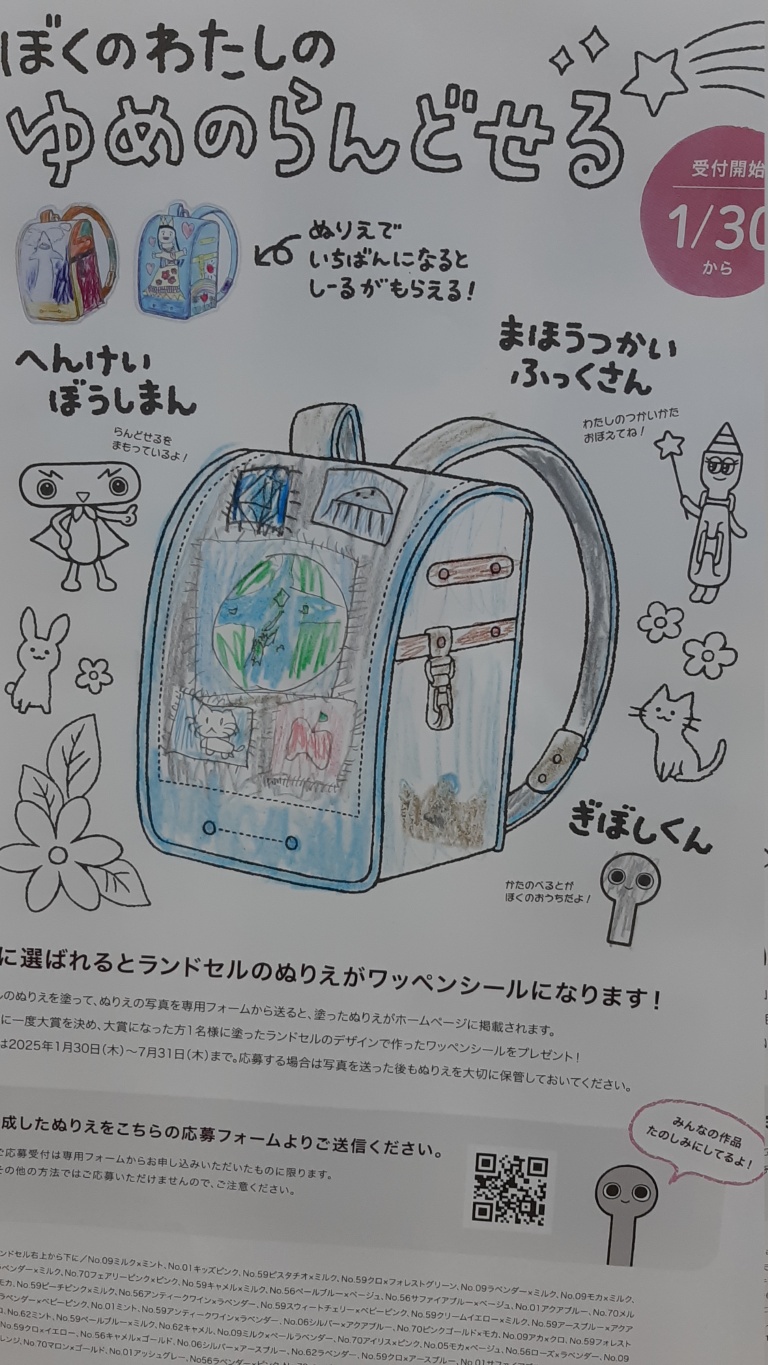 ぼくのわたしの
ゆめのらんどせる
受付開始
1/30
から
ぬりえで
いちばんになると
しーるがもらえる!
へんけい
ぼうしまん
らんどせるを
まもっているよ!
まほうつかい
ふっくさん
わたしのつかいかた
おぼえてね!
ぎぼしくん
かたのべるとが
ぼくのおうちだよ!
に選ばれるとランドセルのぬりえがワッペンシールになります!
のぬりえを塗って、ぬりえの写真を専用フォームから送ると、塗ったぬりえがホームページに掲載されます。
に一度大賞を決め、大賞になった方1名様に塗ったランドセルのデザインで作ったワッペンシールをプレゼント!
は2025年1月30日(木)〜7月31日(木)まで。応募する場合は写真を送った後もぬりえを大切に保管しておいてください。
成したぬりえをこちらの応募フォームよりご送信ください。
ご応募受付は専用フォームからお申し込みいただいたものに限ります。
その他の方法ではご応募いただけませんので、ご注意ください。
みんなの作品
たのしみにしてるよ!
ンドセル右上から下に/No.09ミルク×ミント、No.01キッズピンク、No.59ピスタチオ×ミルク、No.59クロ×フォレストグリーン、No.09ラベンダー×ミルク、No.09モカ×ミルク、
ラベンダー×ミルク、No.70フェアリーピンク×ピンク、No.59キャメル×ミルク、No.56ペールブルー×ベージュ、No.56サファイアブルー×ベージュ、No.01アクアブルー、No.70メル
モカ、No.59ピーチピンク×ミルク、No.56アンティークワイン×ラベンダー、No.59スウィートチェリー×ベビーピンク、No.59クリームイエロー×ミルク、No.59アースブルー×アクア
ラベンダー×ベビーピンク、No.01ミント、No.59アンティークワイン×ラベンダー、No.06シルバー×アクアブルー、No.70ピンクゴールド×モカ、No.09アカ×クロ、No.59フォレスト
No.62ミント、No.59ペールブルー×ミルク、No.62キャメル、No.09ミルク×ペールラベンダー、No.70アイリス×ピンク、No.05モカ×ベージュ、No.56ローズ×ラベンダー、No.09
No.59クロ×イエロー、No.56キャメル×ゴールド、No.06シルバー×アースブルー、No.62ラベンダー、No.59クロ×アースブルー、No.01
レンジ、No.70マロン×ゴールド、No.01アッシュグレー、No.56ラベンダー×